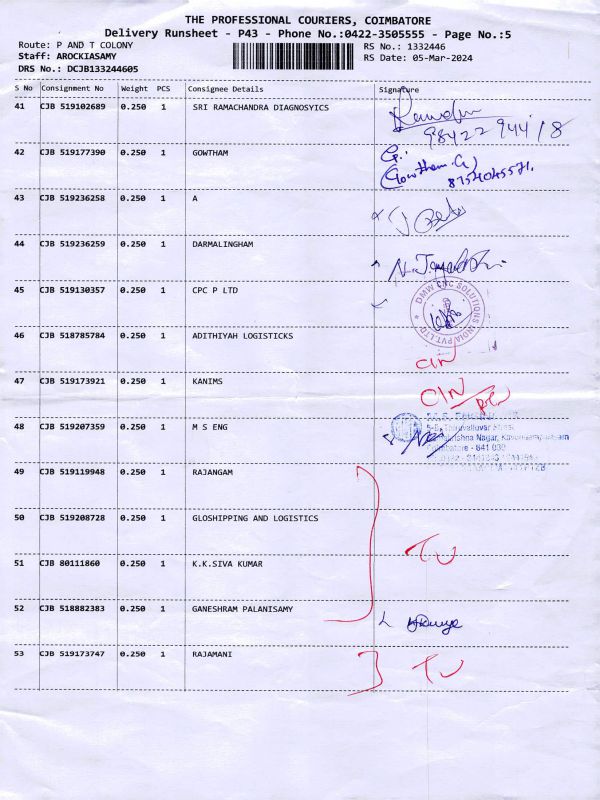 THE PROFESSIONAL COURIERS, COIMBATORE
Delivery Runsheet - P43 - Phone No.:0422-3505555 - Page No.:5
Route: P AND T COLONY
RS No.: 1332446
Staff: AROCKIASAMY
RS Date: 05-Mar-2024
DRS No.: DCJB133244605
S No Consignment No Weight PCS Consignee Details Signature
41 CJB 519102689 0.250 1 SRI RAMACHANDRA DIAGNOSYICS
98422 94418
42 CJB 519177390 0.250 1 GOWTHAM
G.
(Gowtham.G)
8754045571.
43 CJB 519236258 0.250 1 A
44 CJB 519236259 0.250 1 DARMALINGHAM
45 CJB 519130357 0.250 1 CPC P LTD
DMW CNC SOLUTIONS INDIA PVT. LTD
46 CJB 518785784 0.250 1 ADITHIYAH LOGISTICKS
CIN
47 CJB 519173921 0.250 1 KANIMS
CIN
48 CJB 519207359 0.250 1 M S ENG
49 CJB 519119948 0.250 1 RAJANGAM
50 CJB 519208728 0.250 1 GLOSHIPPING AND LOGISTICS
TU
51 CJB 80111860 0.250 1 K.K.SIVA KUMAR
52 CJB 518882383 0.250 1 GANESHRAM PALANISAMY
53 CJB 519173747 0.250 1 RAJAMANI
TU